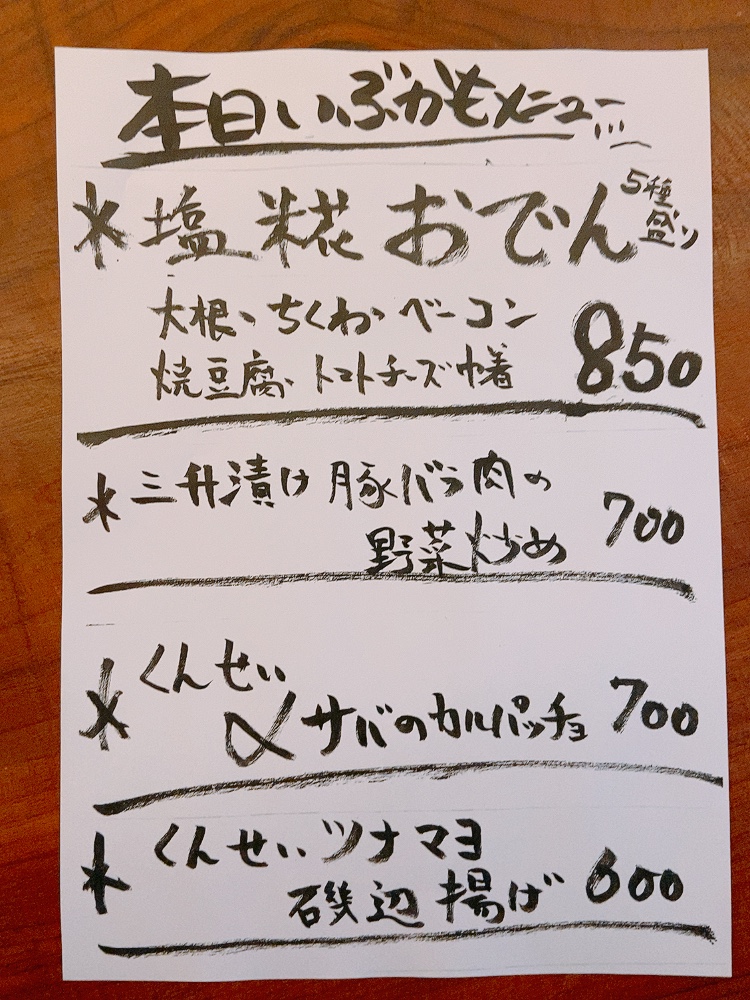 本日いぶかもメニュー
*塩糀おでん 5種盛り
大根、ちくわ、ベーコン
焼豆腐、トマトチーズ巾着 850
*三升漬け豚バラ肉の
野菜炒め 700
*くんせい
〆サバのカルパッチョ 700
*くんせいツナマヨ
磯辺揚げ 600